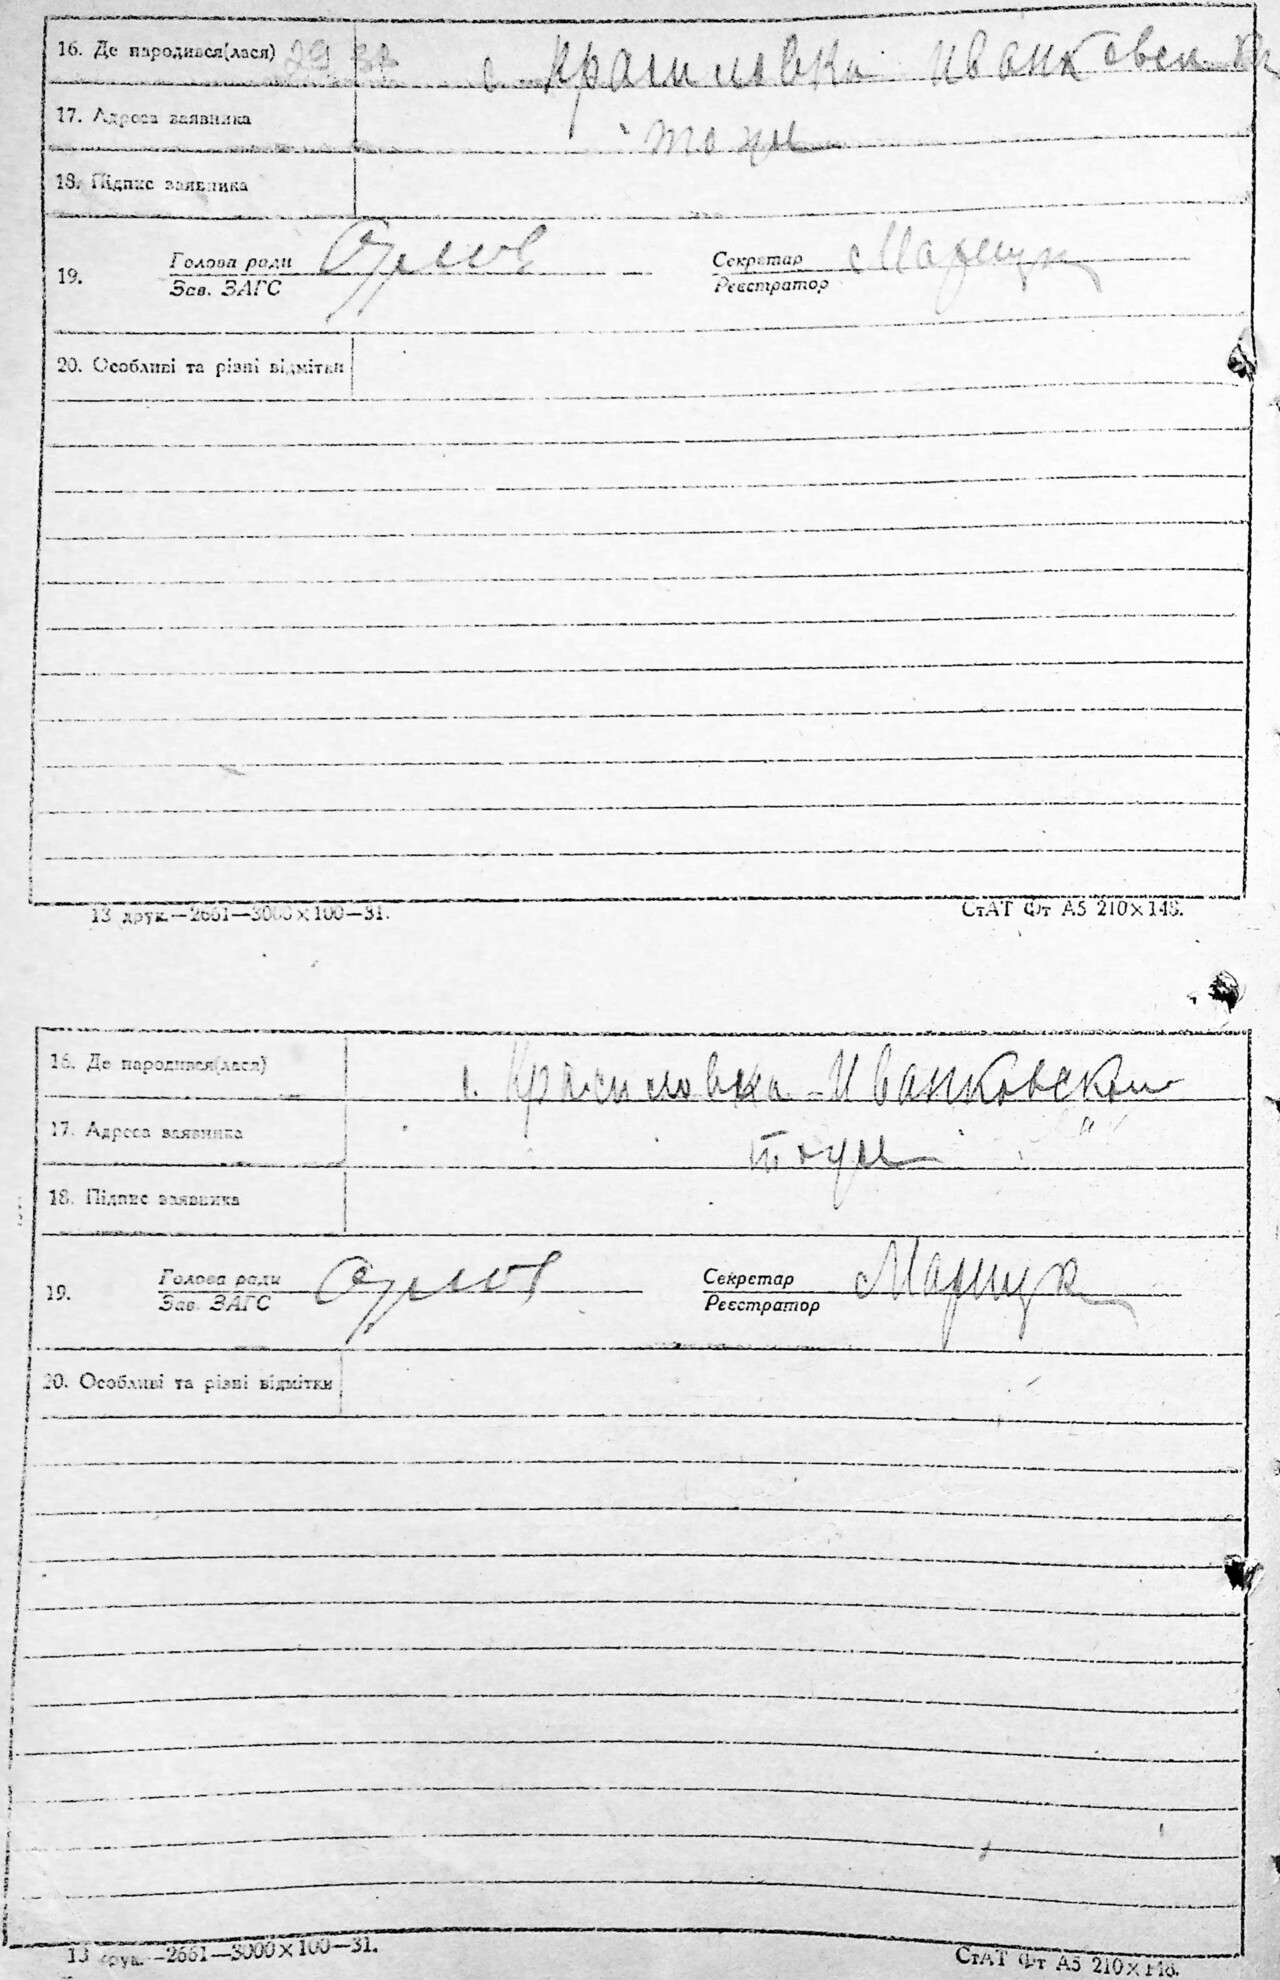 16. Де народився(лася) 29 32 с. Красиловка Иванковск
17. Адреса заявника тоже
18. Підпис заявника
Голова ради Секретар Марчук
19. Зав. ЗАГС Реєстратор
20. Особливі та різні відмітки
13 друк.—2661—3000×100—31. СтАТ Фт А5 210×148.
16. Де народився(лася) с. Красиловка - Иванковском
17. Адреса заявника тоже
18. Підпис заявника
Голова ради Секретар Марчук
19. Зав. ЗАГС Реєстратор
20. Особливі та різні відмітки
13 друк.—2661—3000×100—31. СтАТ Фт А5 210×148.